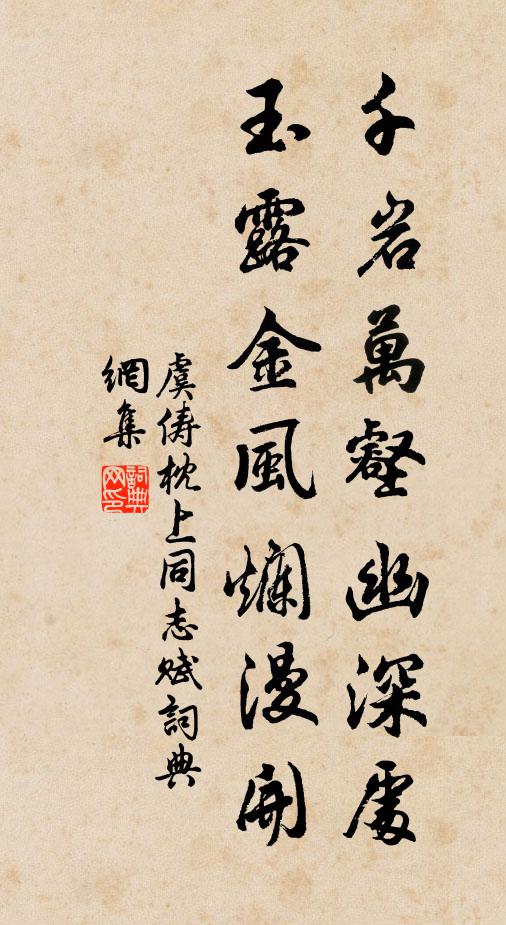 千岩萬壑幽深處
玉露金風爛漫開
虞儔枕上同志賦詞典
網集
詞典
网印